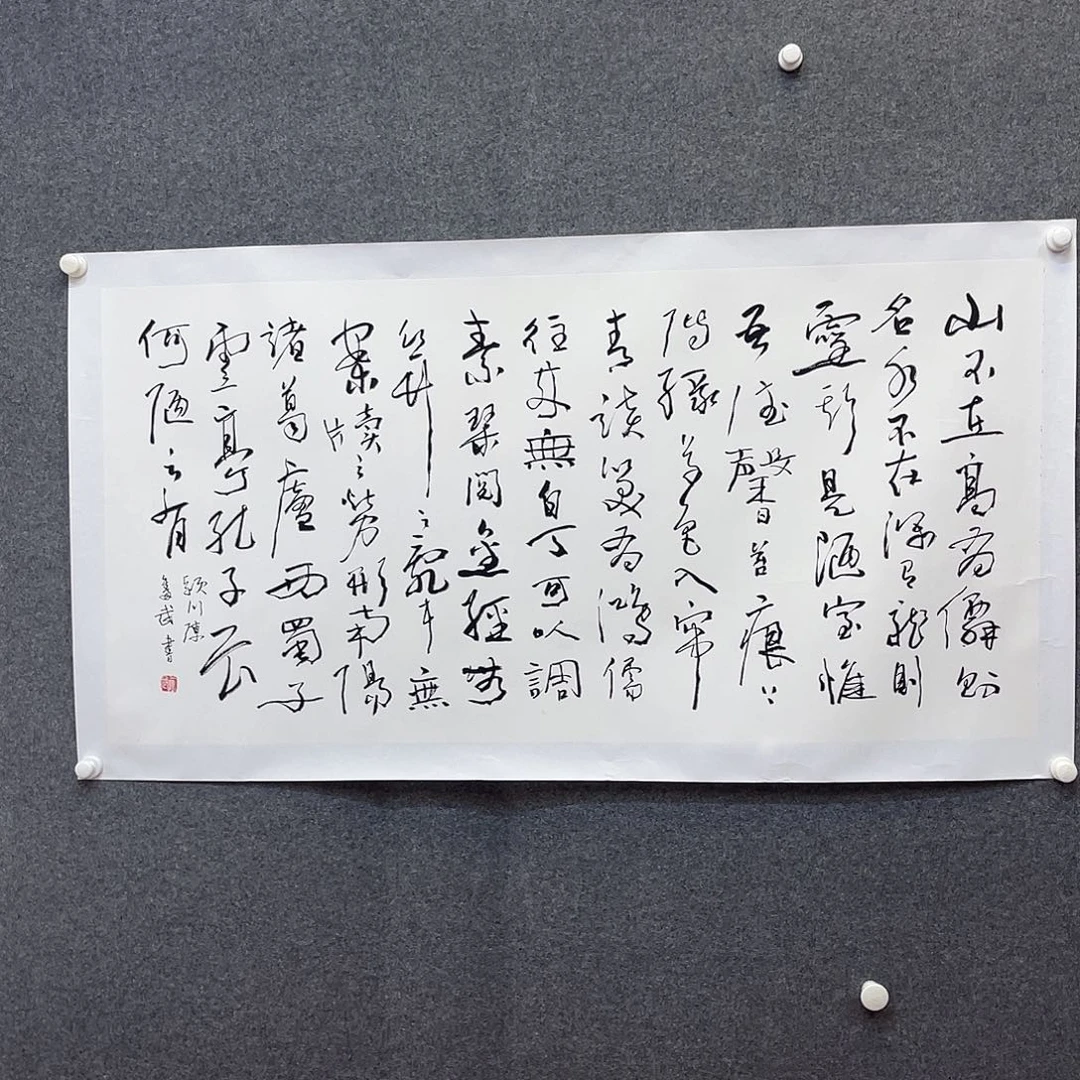 山不在高有僊則
名水不在深有龍則
靈斯是陋室惟
吾德馨苔痕上
階綠草色入簾
青談笑有鴻儒
往來無白丁可以調
素琴閱金經無
絲竹之亂耳無
案牘之勞形南陽
諸葛廬西蜀子
雲亭孔子云
何陋之有
潁川陳
武書